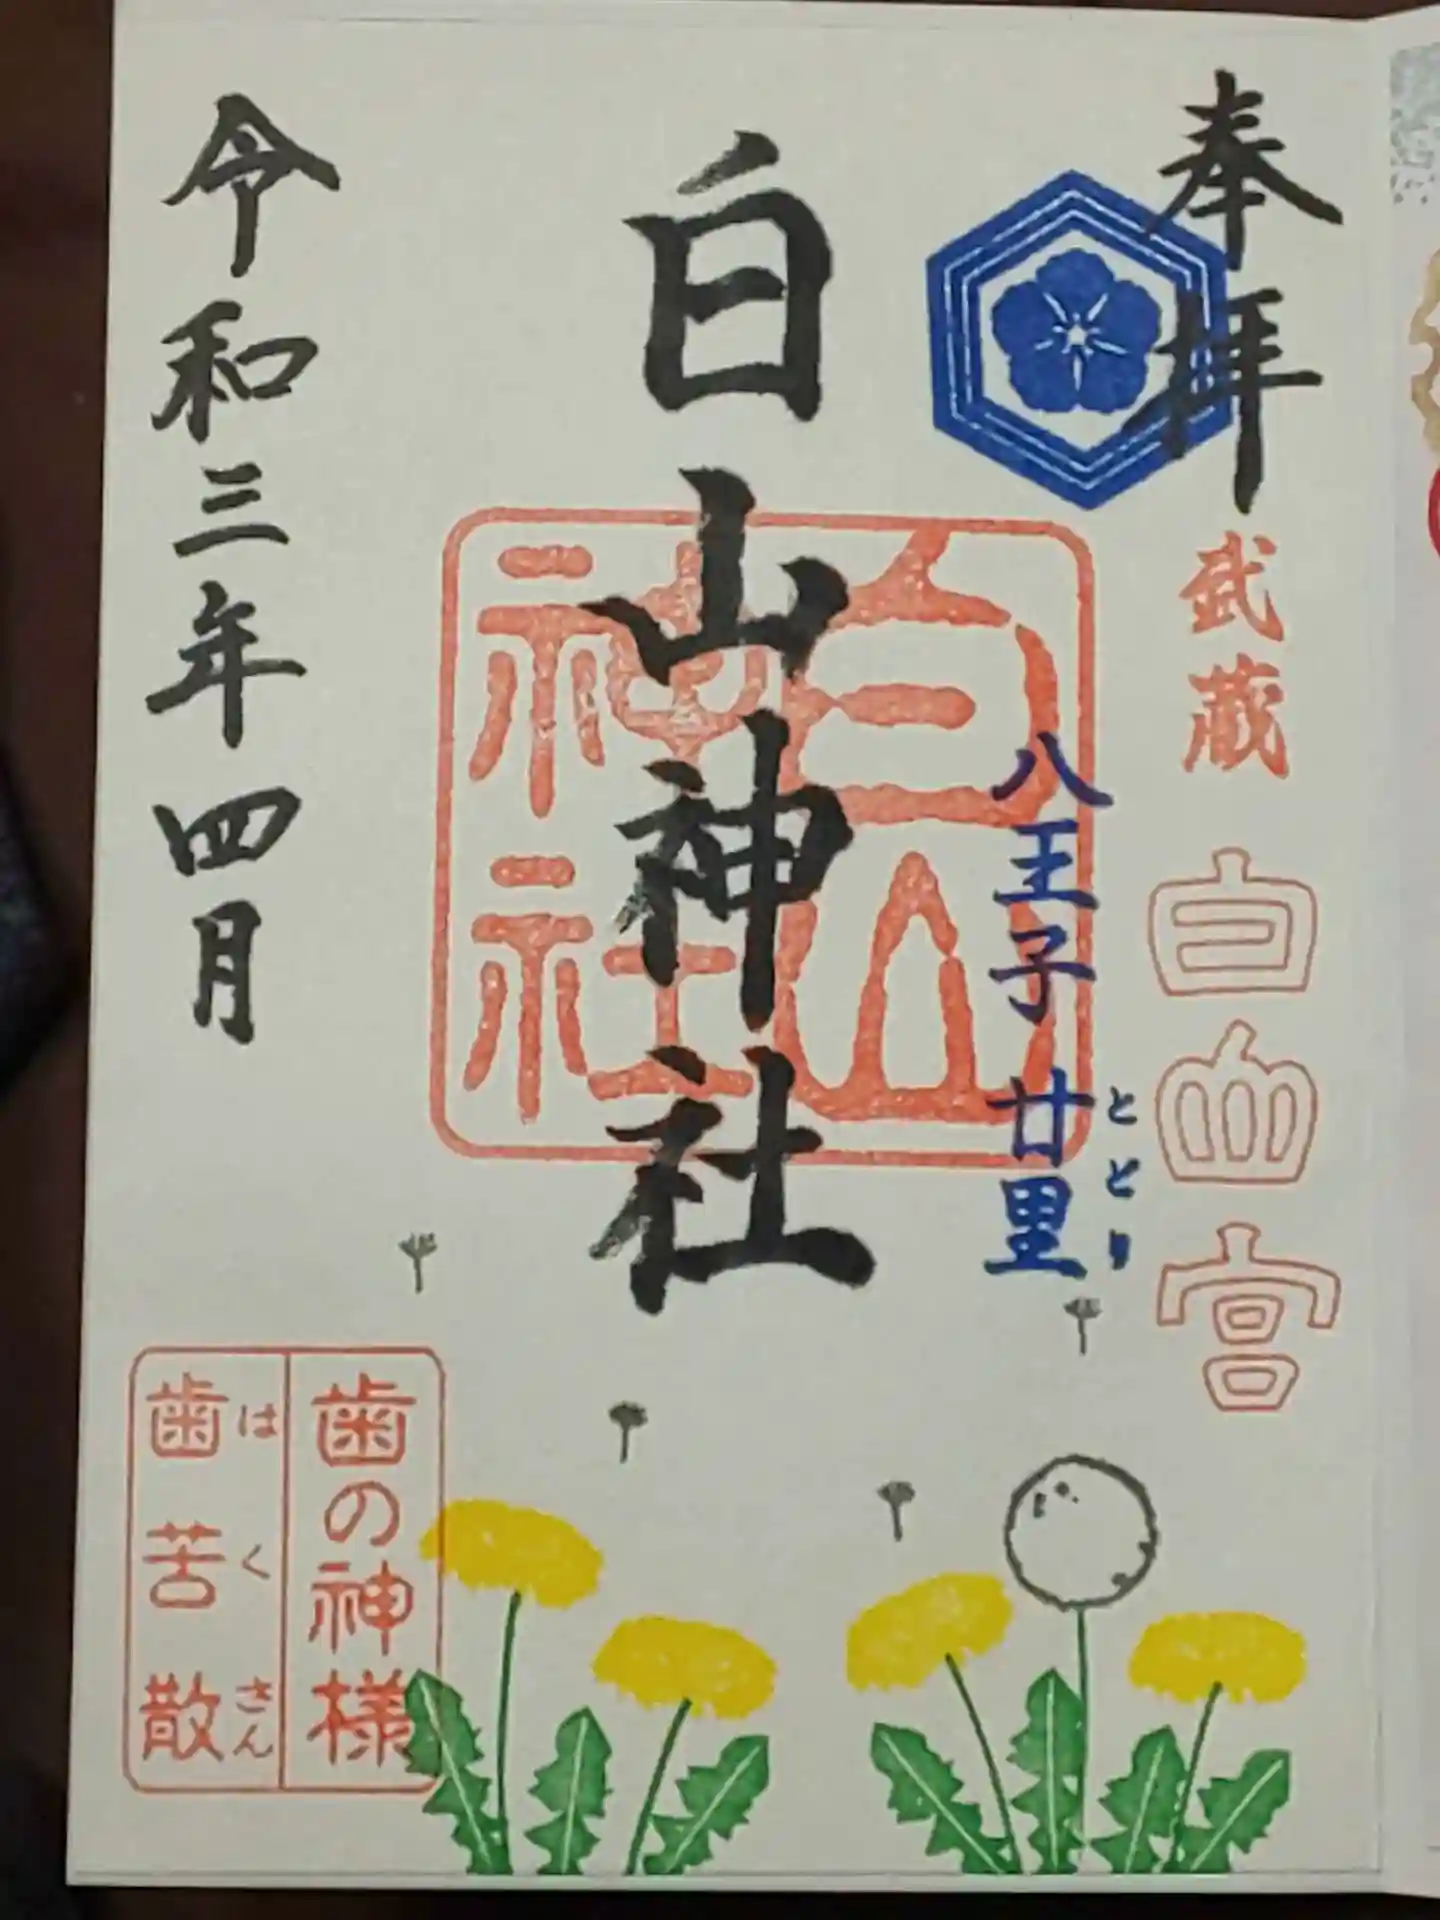 奉拝
武蔵
白山宮
八王子 廿里
ととり
白山神社
白山
神社
令和三年四月
歯の神様
歯苦散
はくさん